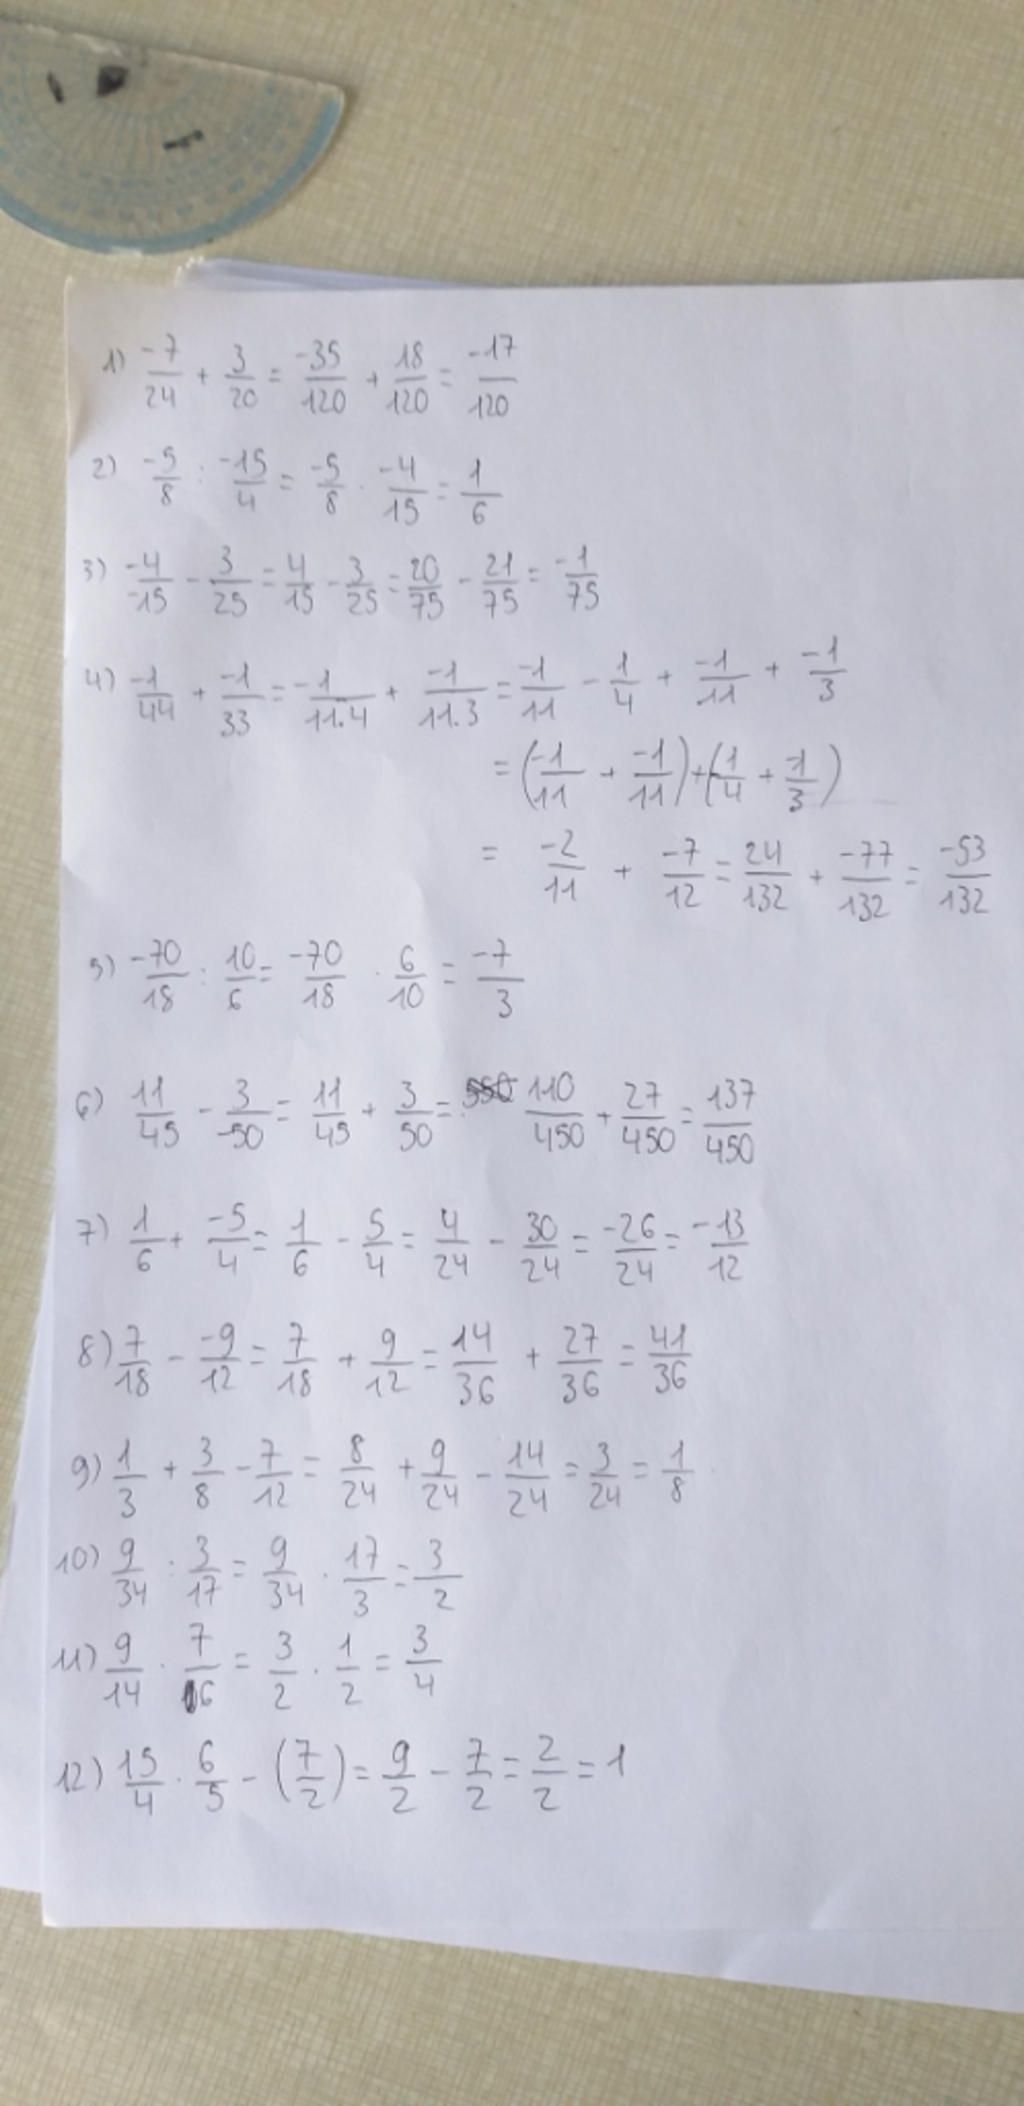 1) -7/24 + 3/20 = -35/120 + 18/120 = -17/120
2) -5/8 : -15/4 = -5/8 . -4/15 = 1/6
3) -4/-15 - 3/25 = 4/15 - 3/25 = 20/75 - 21/75 = -1/75
4) -1/44 + -1/33 = -1/11.4 + -1/11.3 = -1/11 - 1/4 + -1/11 + -1/3
= (-1/11 + -1/11) + (-1/4 + -1/3)
= -2/11 + -7/12 = 24/132 + -77/132 = -53/132
5) -70/18 : 10/6 = -70/18 . 6/10 = -7/3
6) 11/45 - 3/-50 = 11/45 + 3/50 = 110/450 + 27/450 = 137/450
7) 1/6 + -5/4 = 1/6 - 5/4 = 4/24 - 30/24 = -26/24 = -13/12
8) 7/18 - -9/12 = 7/18 + 9/12 = 14/36 + 27/36 = 41/36
9) 1/3 + 3/8 - 7/12 = 8/24 + 9/24 - 14/24 = 3/24 = 1/8
10) 9/34 : 3/17 = 9/34 . 17/3 = 3/2
11) 9/14 . 7/6 = 3/2 . 1/2 = 3/4
12) 15/4 . 6/5 - (7/2) = 9/2 - 7/2 = 2/2 = 1